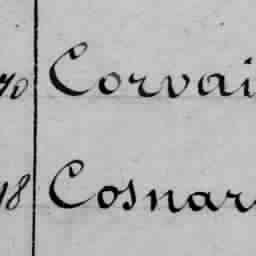 70 Corvai
18 Cosnar